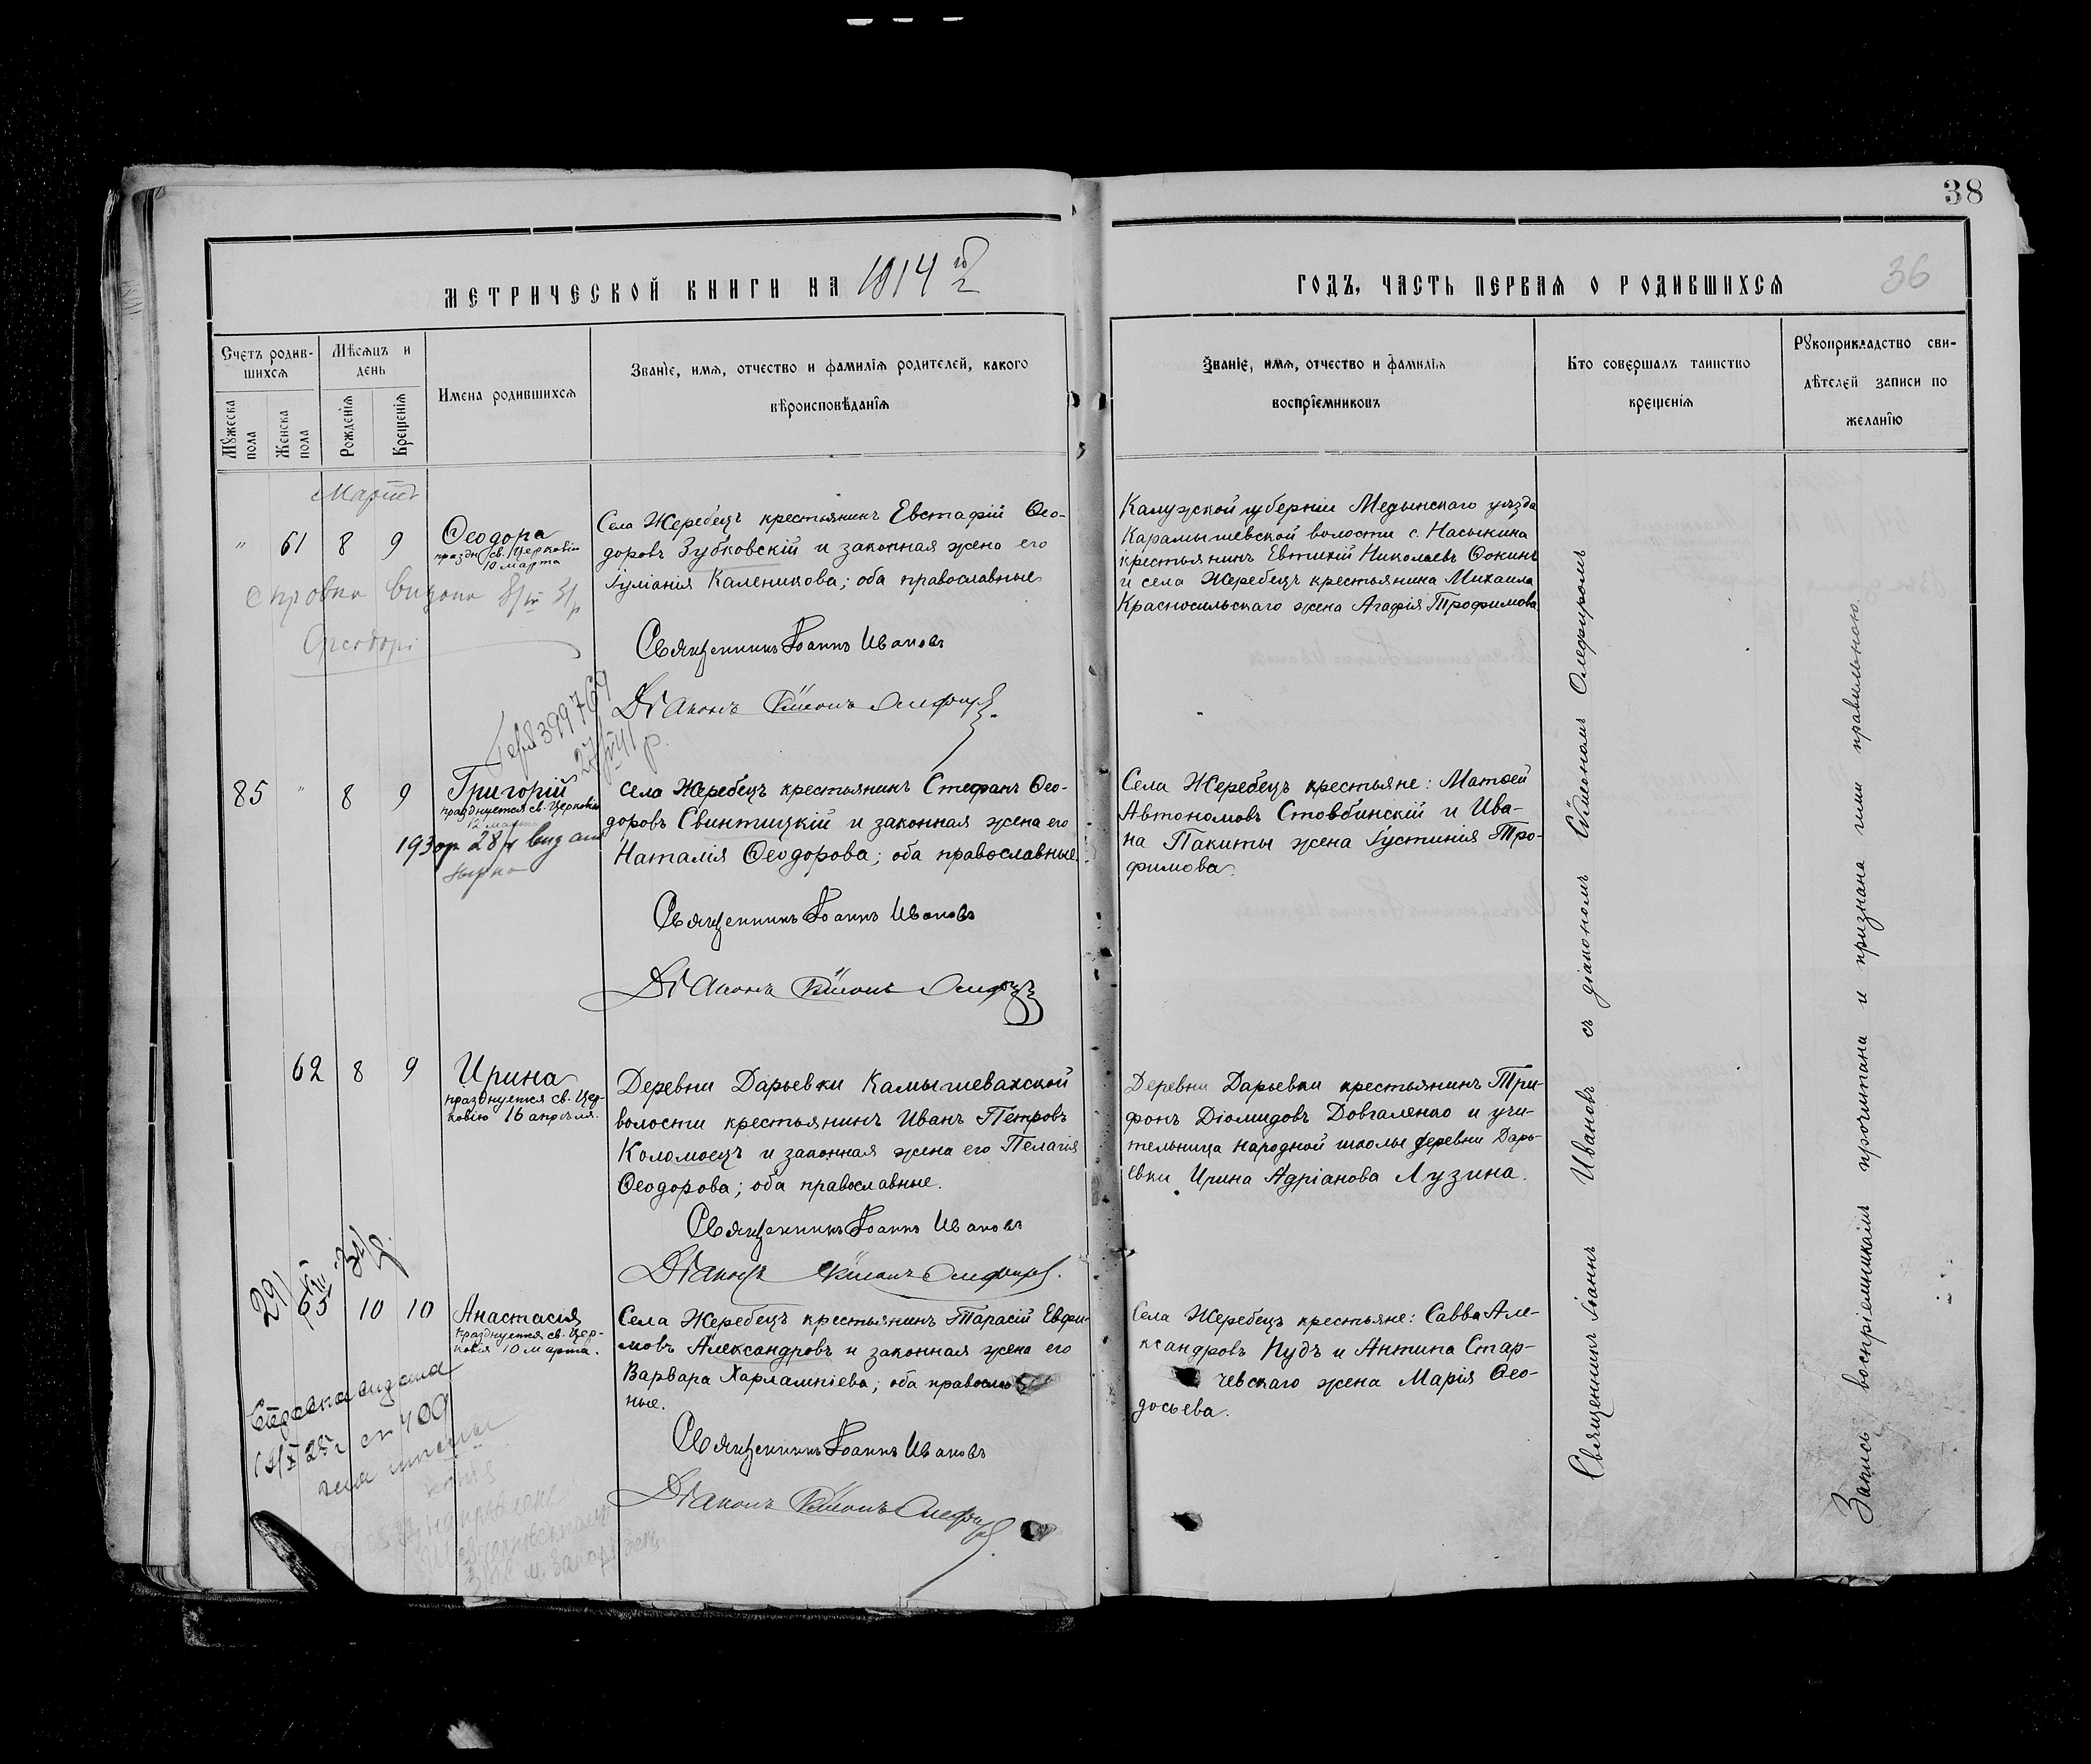 38
36
МЕТРИЧЕСКОЙ КНИГИ НА 1914 го г
ГОДЪ, ЧАСТЬ ПЕРВАЯ О РОДИВШИХСЯ
Счетъ родив-
шихся
Мѣсяцъ и
день
Мужеска
пола
Женска
пола
Рожденія
Крещенія
Имена родившихся
Званіе, имя, отчество и фамилія родителей, какого
вѣроисповѣданія
Званіе, имя, отчество и фамилія
воспріемниковъ
Кто совершалъ таинство
крещенія
Рукоприкладство сви-
дѣтелей записи по
желанію
Мартъ
" 61 8 9
Ѳеодора
праздн. св. Церковію
10 марта
Села Жеребецъ крестьянинъ Евстафій Ѳео-
доровъ Зубковскій и законная жена его
Іуліанія Каленикова; оба православные
Священникъ Іоаннъ Ивановъ
Діаконъ Сѵмеонъ
Калужской губерніи Медынскаго уѣзда
Карамышевской волости с. Насыкина
крестьянинъ Евтихій Николаевъ Ѳокинъ
и села Жеребецъ крестьянина Михаила
Красносильскаго жена Агафія Трофимова
399764
85 " 8 9
Григорій
празднуется св. Церковію
12 марта
Села Жеребецъ крестьянинъ Стефанъ Ѳео-
доровъ Свинтицкій и законная жена его
Наталія Ѳеодорова; оба православные.
Священникъ Іоаннъ Ивановъ
Діаконъ Сѵмеонъ
Села Жеребецъ крестьяне: Матѳей
Автономовъ Стовбинскій и Ива-
на Пакиты жена Іустинія Тро-
фимова.
62 8 9
Ирина
празднуется св. Цер-
ковію 16 апрѣля.
Деревни Дарьевки Камышевахской
волости крестьянинъ Иванъ Петровъ
Коломоецъ и законная жена его Пелагія
Ѳеодорова; оба православные.
Священникъ Іоаннъ Ивановъ
Діаконъ Сѵмеонъ
Деревни Дарьевки крестьянинъ Три-
фонъ Діомидовъ Довгаленко и учи-
тельница народной школы деревни Дарь-
евки Ирина Адріанова Лузина.
10 10
Анастасія
празднуется св. Цер-
ковію 10 марта.
Села Жеребецъ крестьянинъ Тарасій Евфи-
мовъ Александровъ и законная жена его
Варвара Харлампіева; оба правосла
ные.
Священникъ Іоаннъ Ивановъ
Діаконъ Сѵмеонъ
Села Жеребецъ крестьяне: Савва Але-
ксандровъ Кудъ и Антипа Стар-
чевскаго жена Марія Ѳео-
досьева.
Священникъ Іоаннъ Ивановъ съ діакономъ Сѵмеономъ Олефиромъ
Запись воспріемниками прочитана и признана ими правильною.